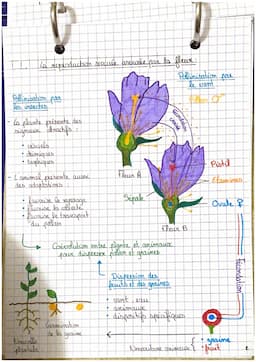 1. La reproduction sexuée assurée par la fleur
Pollinisation par
le vent
Pollinisation par
les insectes
La plante présente des
signaux attractifs :
• visuels
• chimiques
• tactiles
L'animal présente aussi
des adaptations
Fleur A
Pistil
Étamines
Sépale
Ovule ♀
Fleur B
Coévolution entre plante et animaux
pour disperser pollen et graines
Dispersion des
fruits et des graines
• vent, eau
• animaux
• dispositifs spécifiques
Fécondation
Germination
de la graine
Nouvelle
plantule
• graine
• fruit